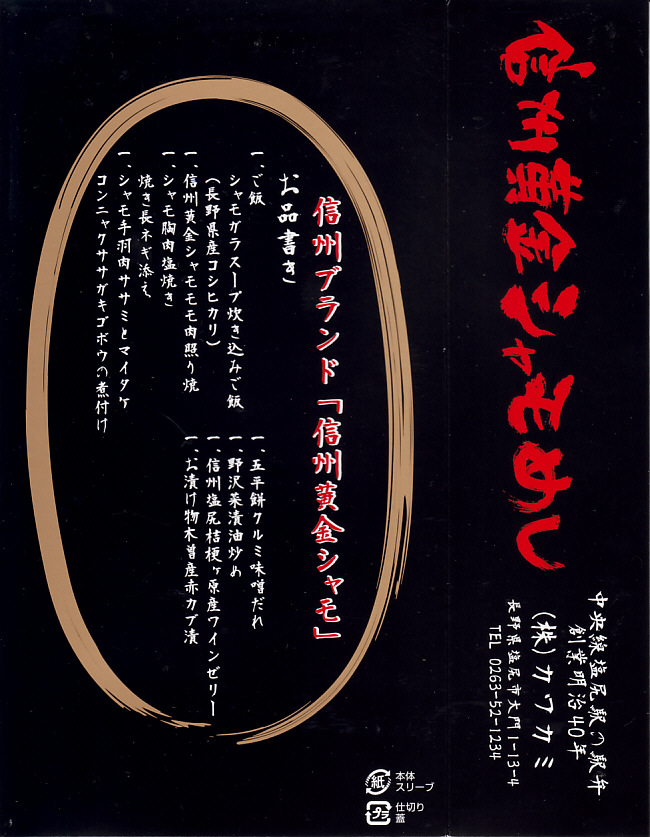 信州黄金シャモめし
中央線塩尻駅の駅弁
創業明治40年
(株)カワカミ
長野県塩尻市大門1-13-4
TEL 0263-52-1234
信州ブランド「信州黄金シャモ」
お品書き
一、ご飯
シャモガラスープ炊き込みご飯
(長野県産コシヒカリ)
一、信州黄金シャモモモ肉照り焼
一、シャモ胸肉塩焼き
焼き長ネギ添え
一、シャモ手羽肉ササミとマイタケ
コンニャクササガキゴボウの煮付け
一、五平餅クルミ味噌だれ
一、野沢菜漬油炒め
一、信州塩尻桔梗ヶ原産ワインゼリー
一、お漬け物木曽産赤カブ漬
紙
本体
スリーブ
プラ
仕切り
蓋